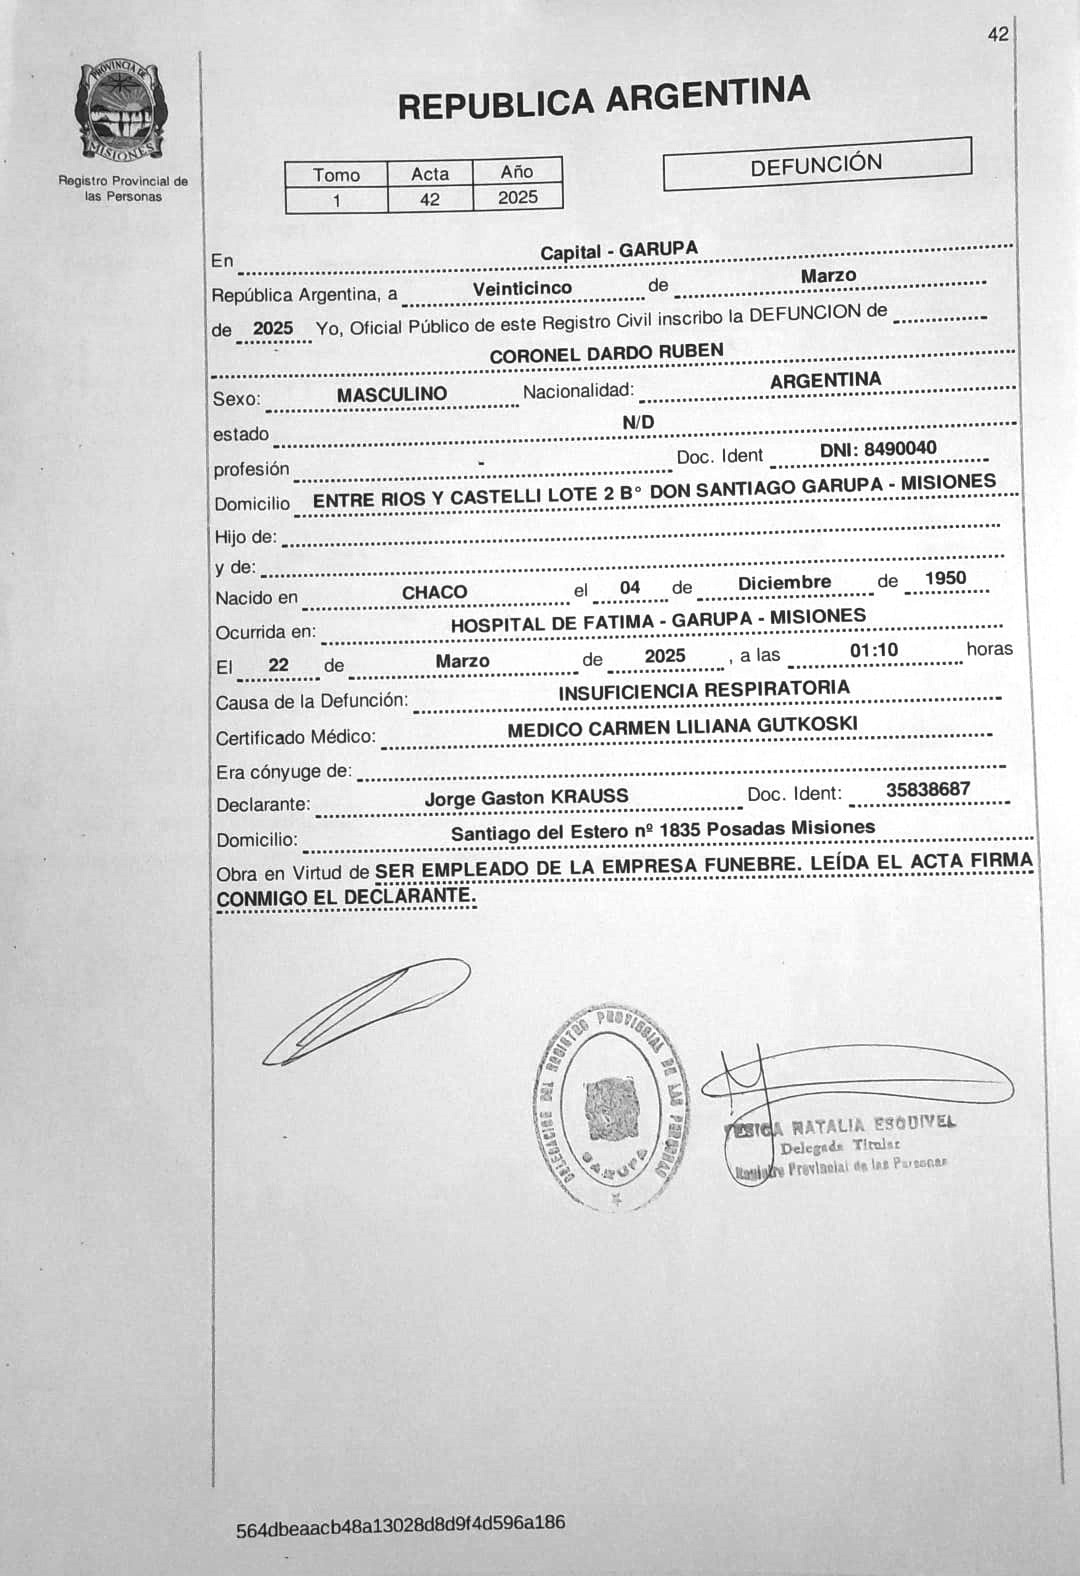 42
PROVINCIA DE
MISIONES
Registro Provincial de
las Personas
REPUBLICA ARGENTINA
Tomo Acta Año
1 42 2025
DEFUNCIÓN
En Capital - GARUPA
República Argentina, a Veinticinco de Marzo
de 2025 Yo, Oficial Público de este Registro Civil inscribo la DEFUNCION de
CORONEL DARDO RUBEN
Sexo: MASCULINO Nacionalidad: ARGENTINA
estado N/D
profesión - Doc. Ident DNI: 8490040
Domicilio ENTRE RIOS Y CASTELLI LOTE 2 B° DON SANTIAGO GARUPA - MISIONES
Hijo de:
y de:
Nacido en CHACO el 04 de Diciembre de 1950
Ocurrida en: HOSPITAL DE FATIMA - GARUPA - MISIONES
El 22 de Marzo de 2025 , a las 01:10 horas
Causa de la Defunción: INSUFICIENCIA RESPIRATORIA
Certificado Médico: MEDICO CARMEN LILIANA GUTKOSKI
Era cónyuge de:
Declarante: Jorge Gaston KRAUSS Doc. Ident: 35838687
Domicilio: Santiago del Estero nº 1835 Posadas Misiones
Obra en Virtud de SER EMPLEADO DE LA EMPRESA FUNEBRE. LEÍDA EL ACTA FIRMA
CONMIGO EL DECLARANTE.
DEL REGISTRO PROVINCIAL DE LAS PERSONAS
GARUPA
YESICA NATALIA ESQUIVEL
Delegada Titular
Registro Provincial de las Personas
564dbeaacb48a13028d8d9f4d596a186